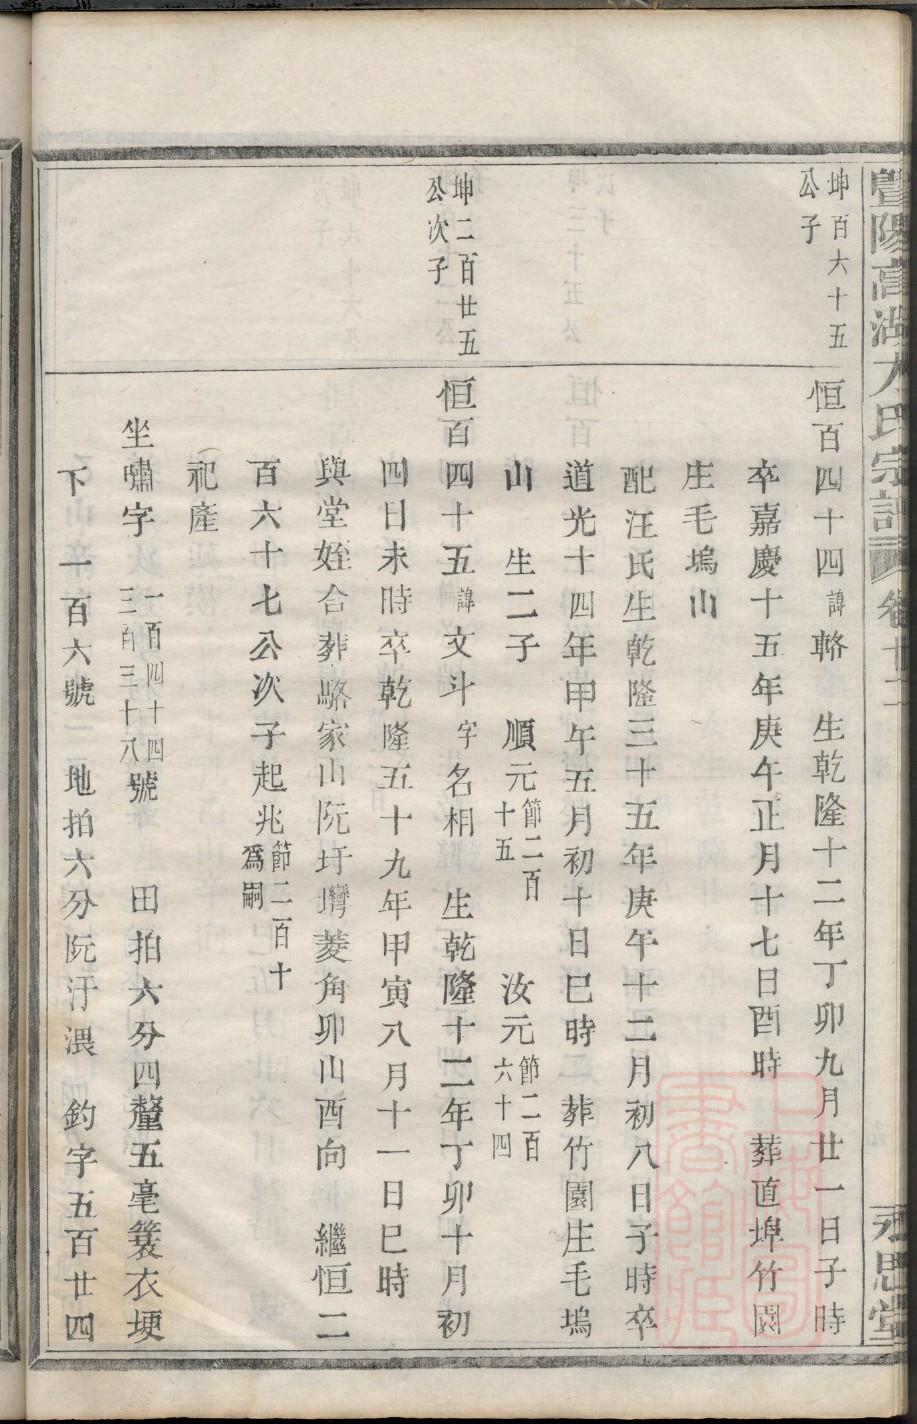 暨陽高湖方氏宗譜 卷十二 永思堂
坤百六十五
公子
恒百四十四諱輅 生乾隆十二年丁卯九月廿一日子時
卒嘉慶十五年庚午正月十七日酉時 葬直埠竹園
庄毛塢山
配汪氏生乾隆三十五年庚午十二月初八日子時卒
道光十四年甲午五月初十日巳時 葬竹園庄毛塢
山 生二子 順元節二百十五 汝元節二百六十四
坤二百廿五
公次子
恒百四十五諱文斗字名相 生乾隆十二年丁卯十月初
四日未時卒乾隆五十九年甲寅八月十一日巳時
與堂姪合葬駱家山阮圩灣菱角卯山酉向 繼恒二
百六十七公次子起兆節二百十為嗣
祀產
坐嘯字一百四十四三百三十八號 田拍六分四釐五毫簑衣埂
下一百六號 地拍六分阮汙 釣字五百廿四